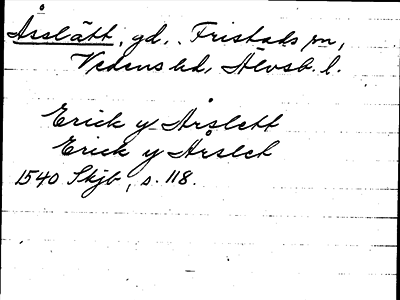 Åsslätt, gd., Fristads sn,
Vedens hd, Älvsb. l.
Erick y Årslett
Erick y Årslet
1540 Skjb, s. 118.